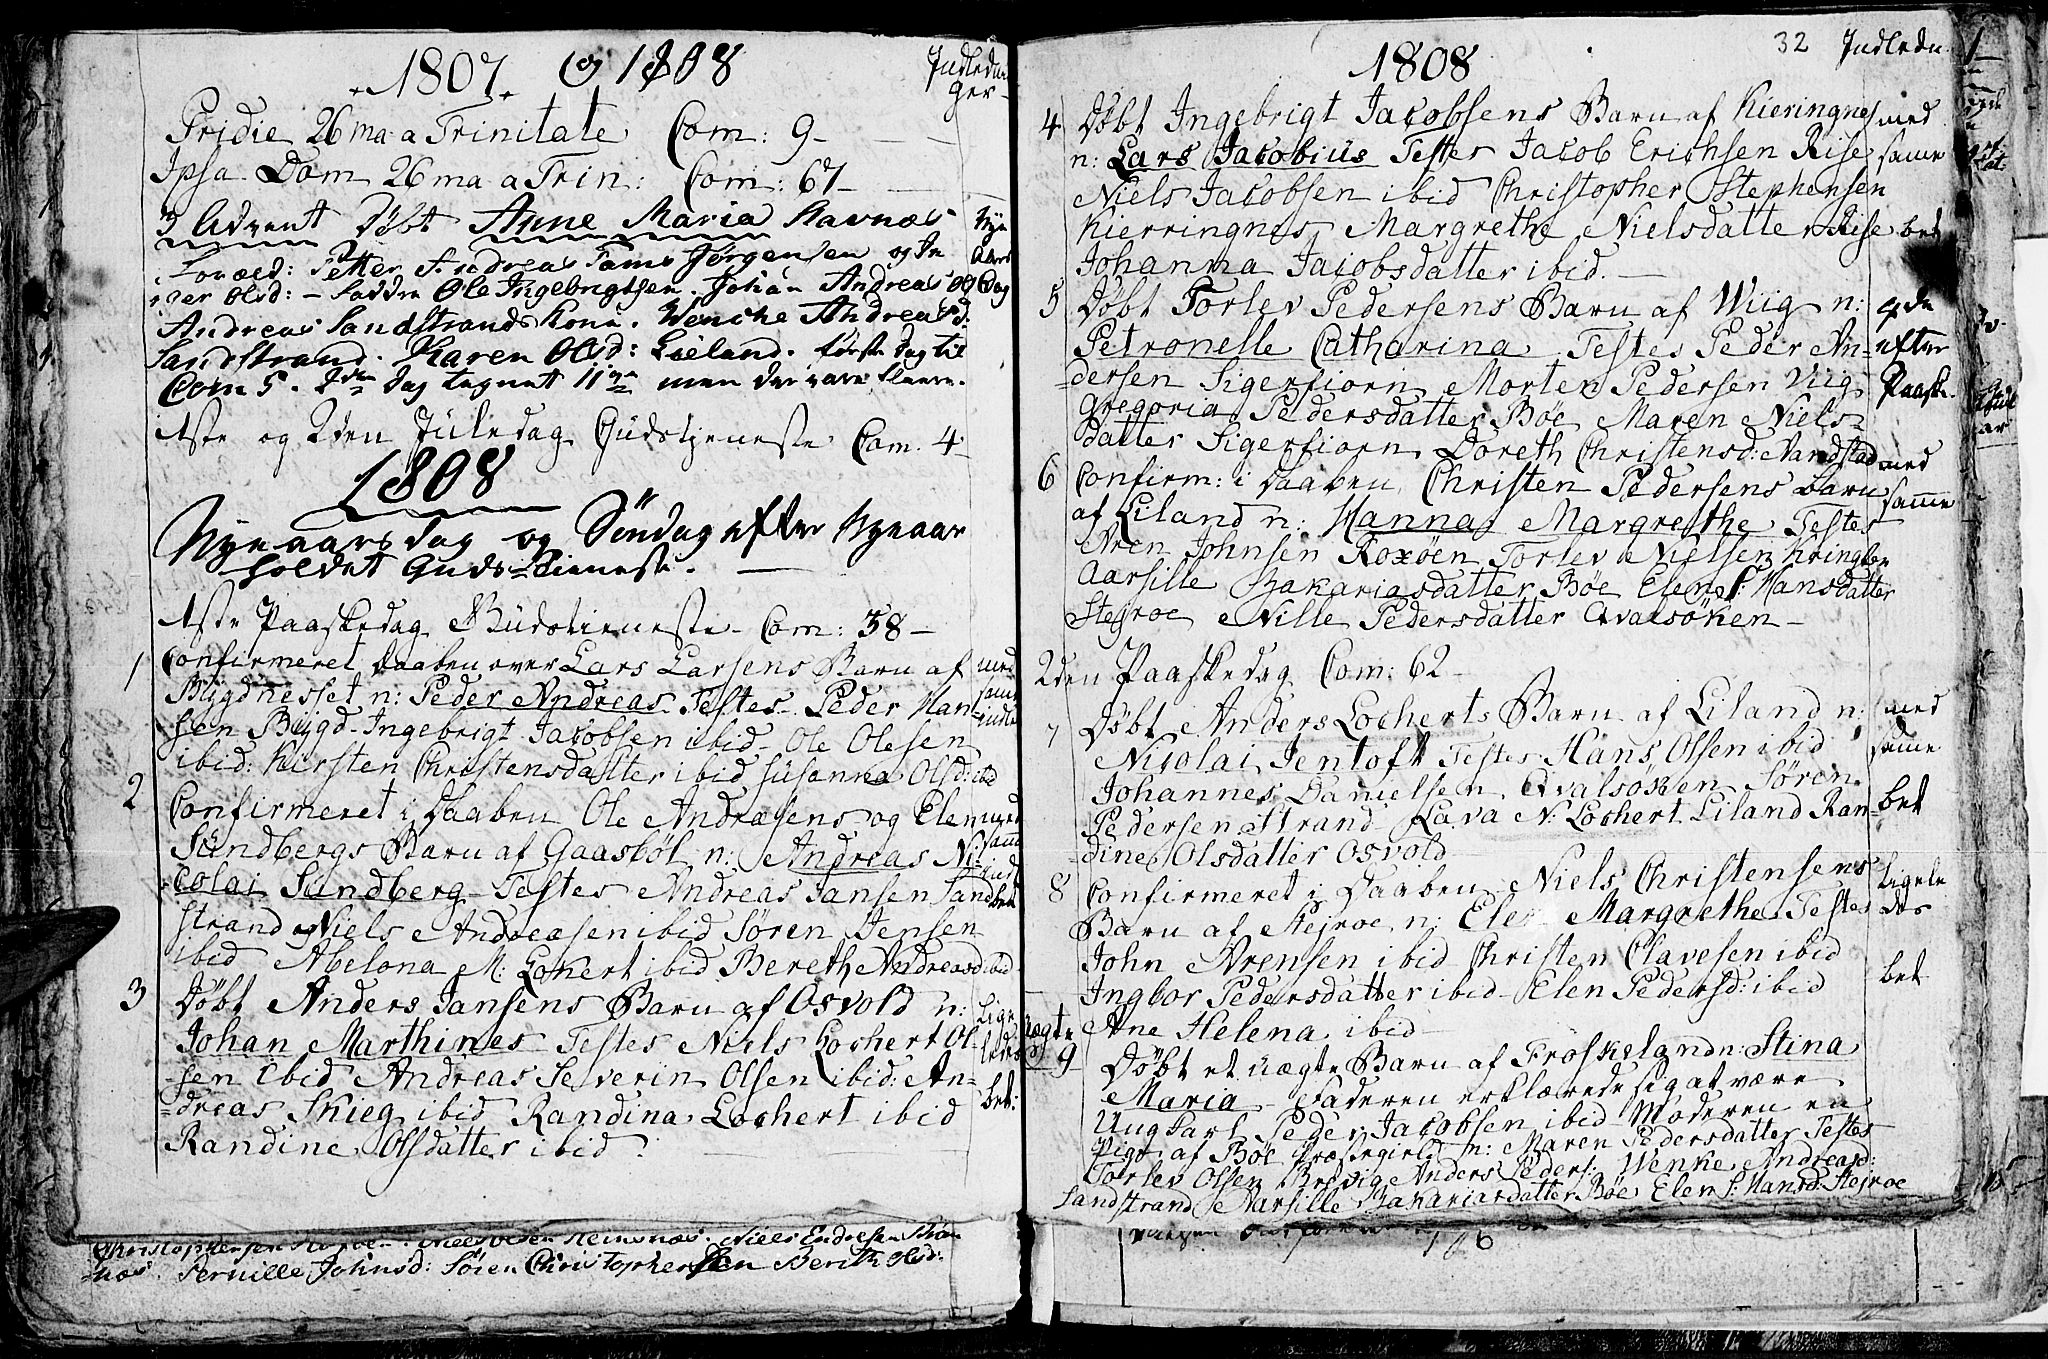 1807 og 1808
Indledn
ger
Pridie 26ma a Trinitate Com: 9-
Ipsa Dom 26ma a Trin: Com: 67-
3 Advent Døbt Anne Maria Kavnæs
Nye
Foræld: Petter Andreas Jørgensen og
Aars
Olsd: - Fadder Ole Ingebrigtsen. Johan Andreas og
Dag
Andreas Sandstrands Kone. Wenche Andreasd:
Sandstrand. Karen Olsd: Lieland. første Dag til
Com 5. 2den Dag tegnet 11 men der vare fleere.
1ste og 2den Juledag Gudstjeneste Com. 4-
1808
Nyeaarsdag og Søndag efter Nyeaar
holdet Guds-Tieneste.
1ste Paaskedag Gudstieneste Com: 38-
1 Confirmeret Daaben over Lars Larsens Barn af
med
Bygdnesset n: Peder Andreas Testes Peder Han-
sam
sen Bygd- Ingebrigt Jacobsen ibid- Ole Olesen
ibid: Kirsten Christensdatter ibid Susanna Olsd: ibd
2 Confirmeret i Daaben Ole Andræsens og Elen
med
Sundbergs Barn af Gaasbøl n: Andreas Ni-
sam
colai Sundberg Testes Andreas Jansen Sand-
strand og Niels Andreasen ibid Søren Jensen
bet
ibid Abelona M: Lokert ibid Bereth Andreasd ibid
3 Døbt Anders Jansens Barn af Osvold n:
lige
Johan Marthines Testes Niels Lochert Ol-
ledes
sen ibid Andreas Severin Olsen ibid: An-
bet:
dreas Skieg ibid Randina Lochert ibid
Randine Olsdatter ibid
Christophersen Niels Olsen Steinsnæs. Niels Endresen
næs. Pernille Johnsd: Søren Christophersen Berith Olsd:
1808
32 Indledn
4 Døbt Ingebrigt Jacobsens Barn af Kieringnes
med
n: Lars Jacobius Testes Jacob Erichsen Rise
same
Niels Jacobsen ibid Christopher Stephensen
Kierringnes Margrethe Nielsdatter Rise
bet
Johanna Jacobsdatter ibid. -
5 Døbt Torlev Pedersens Barn af Wiig n:
Petronelle Catharina Testes Peder An-
efter
dersen Sigerfiorn Morten Pedersen Viig
Paaske.
Gregoria Pedersdatter Bøe Maren Niels
datter Sigerfiorn Doreth Christensd: Vandstad
6 Confirm: i Daaben Christen Pedersens Barn
med
af Liland n: Hanna Margrethe Testes
samme
Aren Johnsen Roxøen Torlev Nielsen Kringlen
Aarsille Zakariasdatter Bøe Elen S: Hansdatter
Stejroe Nille Pedersdatter Qvalsöken-
2den Paaskedag Com: 62-
7 Døbt Anders Locherts Barn af Liland n:
med
Nicolai Jentoft Testes Hans Olsen ibid
same
Johannes Danielsen Qvalsöken Søren
bet
Pedersen Strand Lava N: Lochert Liland Ran-
dine Olsdatter Osvold
8 Confirmeret i Daaben Niels Christensens
ligele
Barn af Stejroe n: Elen Margrethe Testes
des
John Arensen ibid Christen Olavesen ibid
Ingbor Pedersdatter ibid- Elen Pedersd: ibid
bet
Ane Helena ibid-
uægte
9 Døbt et uægte Barn af Froskeland n: Stina
Maria - Faderen erklærede sig at være
Ungkarl Peder Jacobsen ibid Moderen en
Pige af Bøe Præsegield n: Maren Pedersdatter Testes
Torlev Olsen Brevig Anders Peders: Wenke Andreasd:
Sandstrand Aarsille Zakariasdatter Bøe Elen S: Hansd: Stejroe